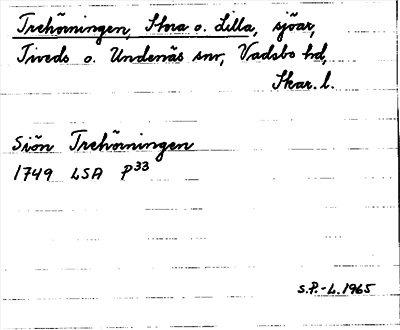 Trehörningen, Stora o. Lilla, sjöar,
Tiveds o. Undenäs snr, Vadsbo hd,
Skar. l.
Siön Trehörningen
1749 LSA P33
S.P.-L. 1965